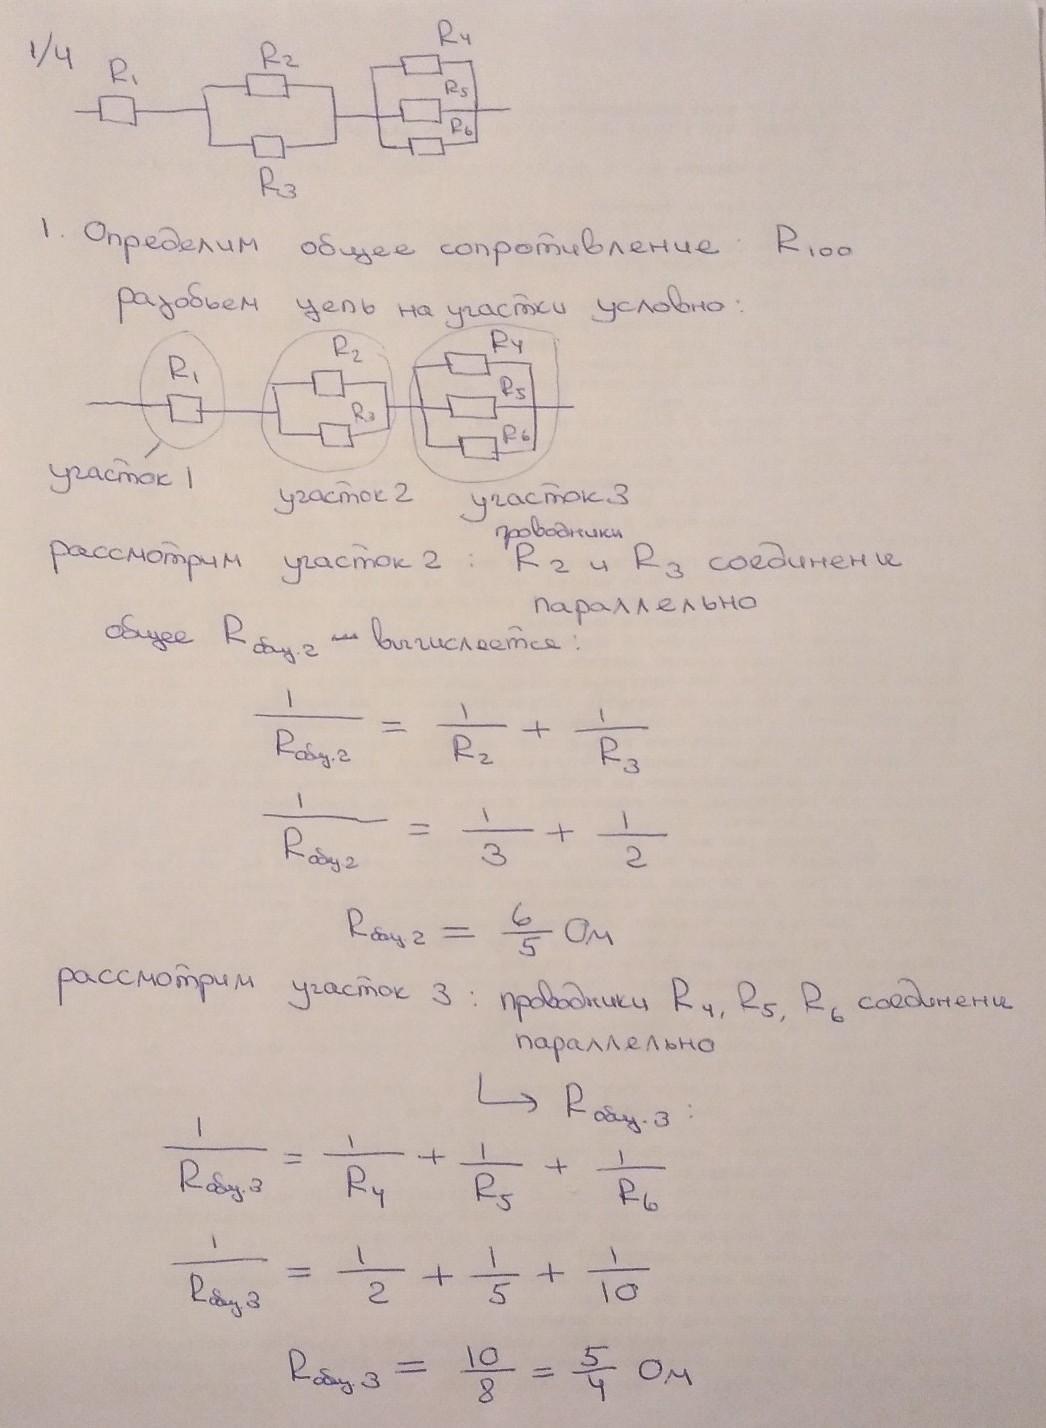 1/4
R1 R2 R3 R4 R5 R6
1. Определим общее сопротивление: R100
разобьем цепь на участки условно:
R1 R2 R3 R4 R5 R6
участок 1 участок 2 участок 3
проводники
рассмотрим участок 2: R2 и R3 соединены
параллельно
общее Rобщ.2 – вычисляется:
1/Rобщ.2 = 1/R2 + 1/R3
1/Rобщ2 = 1/3 + 1/2
Rобщ2 = 6/5 Ом
рассмотрим участок 3: проводники R4, R5, R6 соединены
параллельно
↳ Rобщ.3:
1/Rобщ.3 = 1/R4 + 1/R5 + 1/R6
1/Rобщ3 = 1/2 + 1/5 + 1/10
Rобщ.3 = 10/8 = 5/4 Ом